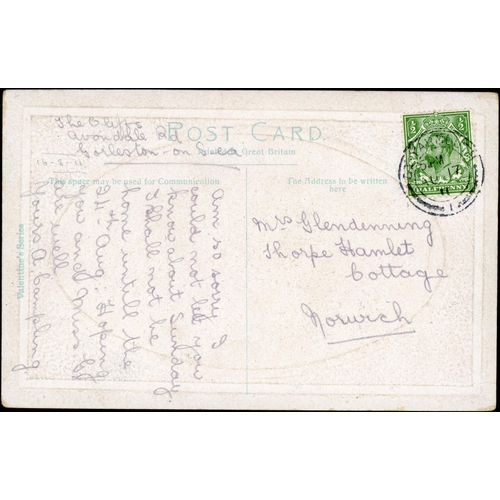 The Cliffs
Avondale Rd
Gorleston-on-Sea
16-8-11
POST CARD.
Printed in Great Britain
This space may be used for Communication
The Address to be written
here
Valentine's Series
I
am so sorry
could not let you
know about Sunday
I shall not be
home untill the
24th Aug. Hoping
you and Miss
are well
Yours A. Campling
Mrs Glendenning
Thorpe Hamlet
Cottage
Norwich
HALFPENNY